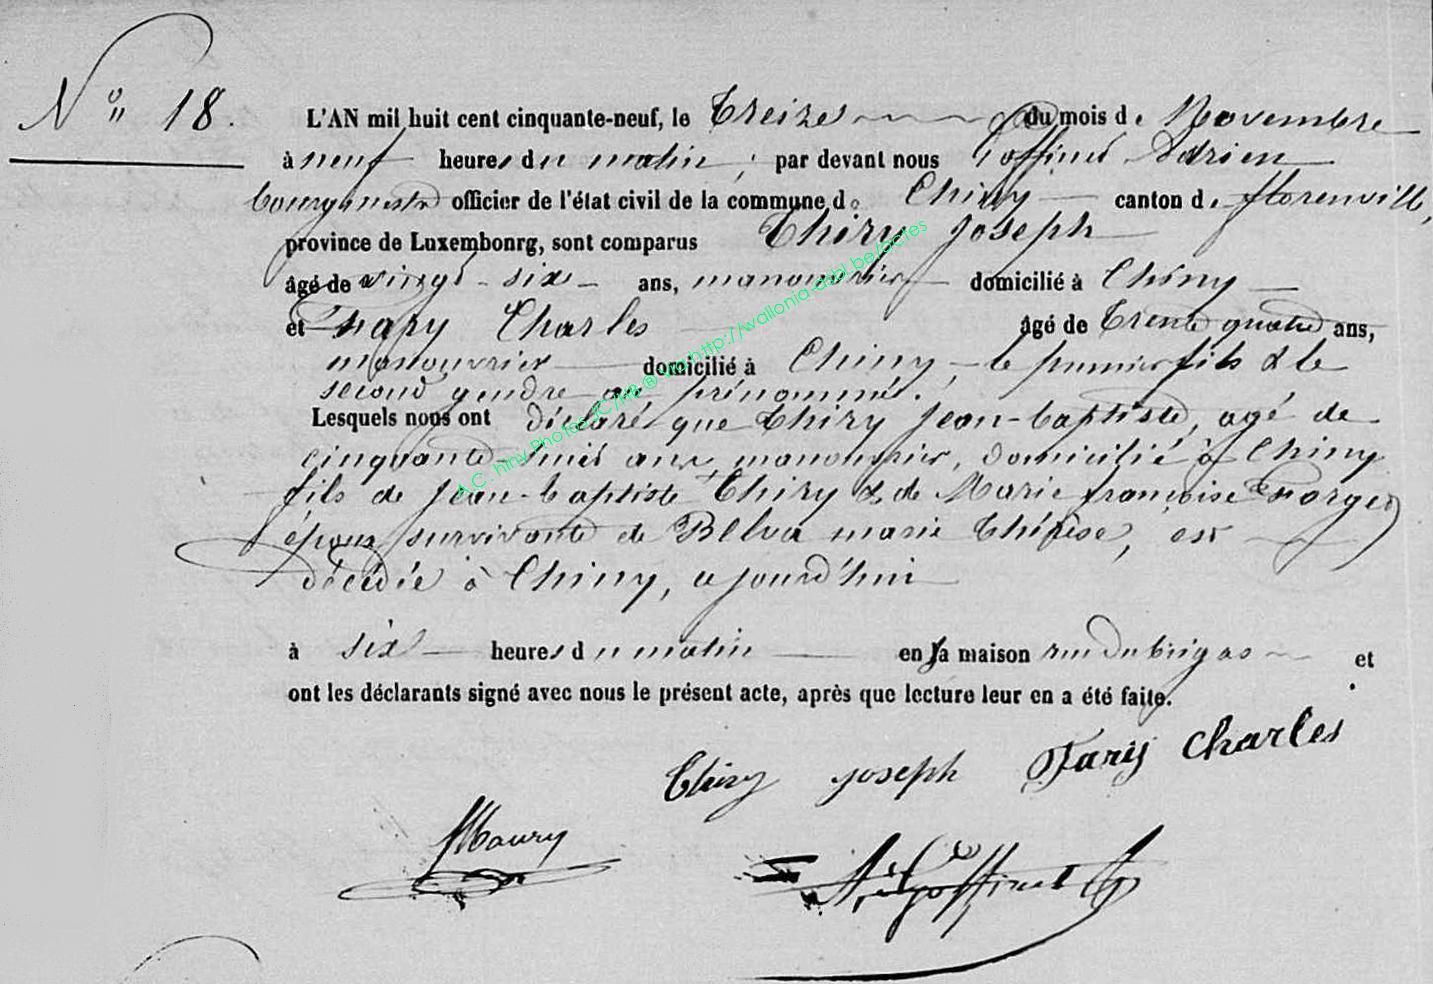 N° 18.
L'AN mil huit cent cinquante-neuf, le Treize du mois de Novembre
à neuf heures du matin, par devant nous Goffinet Adrien
bourgmestre officier de l'état civil de la commune de Chiny canton de florenville,
province de Luxembonrg, sont comparus Thiry Joseph
âgé de vingt-six ans, manouvrier domicilié à Chiny
et Fary Charles âgé de trente quatre ans,
manouvrier domicilié à Chiny, le premier fils & le
second gendre au prénommé.
Lesquels nous ont déclaré que Thiry Jean-baptiste, agé de
cinquante-huit ans, manouvrier, domicilié à Chiny
fils de Jean-baptiste Thiry & de Marie françoise
époux survivante de Belva marie thérèse, est
décédée à Chiny, ajourd'hui
à six heures du matin en sa maison rue du et
ont les déclarants signé avec nous le présent acte, après que lecture leur en a été faite.
Thiry joseph Fary Charles
Maury
A. Goffinet
A.C. Chiny Photos JC/HB ® via http://wallonia-asbl.be/actes